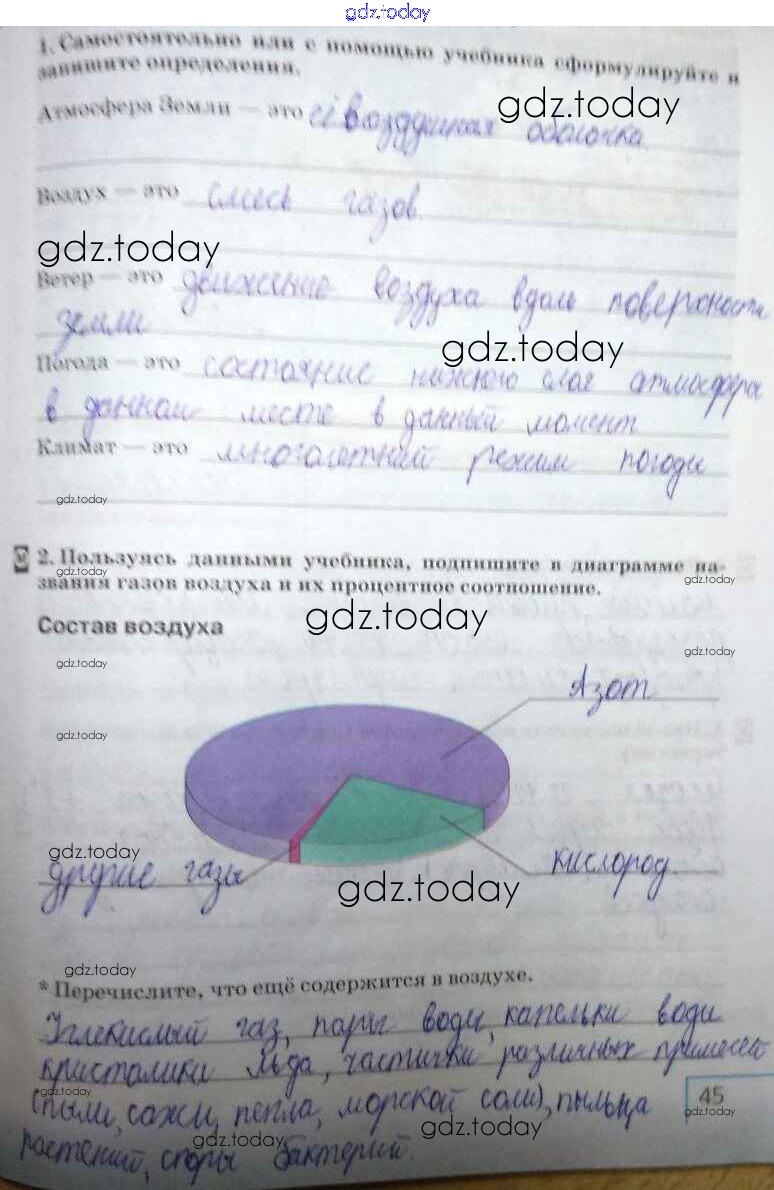 gdz.today
1. Самостоятельно или с помощью учебника сформулируйте и
запишите определения.
gdz.today
Атмосфера Земли — это её воздушная оболочка.
Воздух — это смесь газов.
gdz.today
Ветер — это движение воздуха вдоль поверхности
земли
gdz.today
Погода — это состояние нижнего слоя атмосферы
в данном месте в данный момент
Климат — это многолетний режим погоды
gdz.today
2. Пользуясь данными учебника, подпишите в диаграмме на-
звания газов воздуха и их процентное соотношение.
gdz.today
gdz.today
gdz.today
Состав воздуха
gdz.today
gdz.today
gdz.today
Азот
gdz.today
gdz.today
другие газы
кислород.
gdz.today
gdz.today
* Перечислите, что ещё содержится в воздухе.
Углекислый газ, пары воды, капельки воды
кристалики льда, частички различных примесей
gdz.today
(пыли, сажи, пепла, морской соли), пыльца
45
gdz.today
gdz.today
gdz.today
растений, споры бактерий.